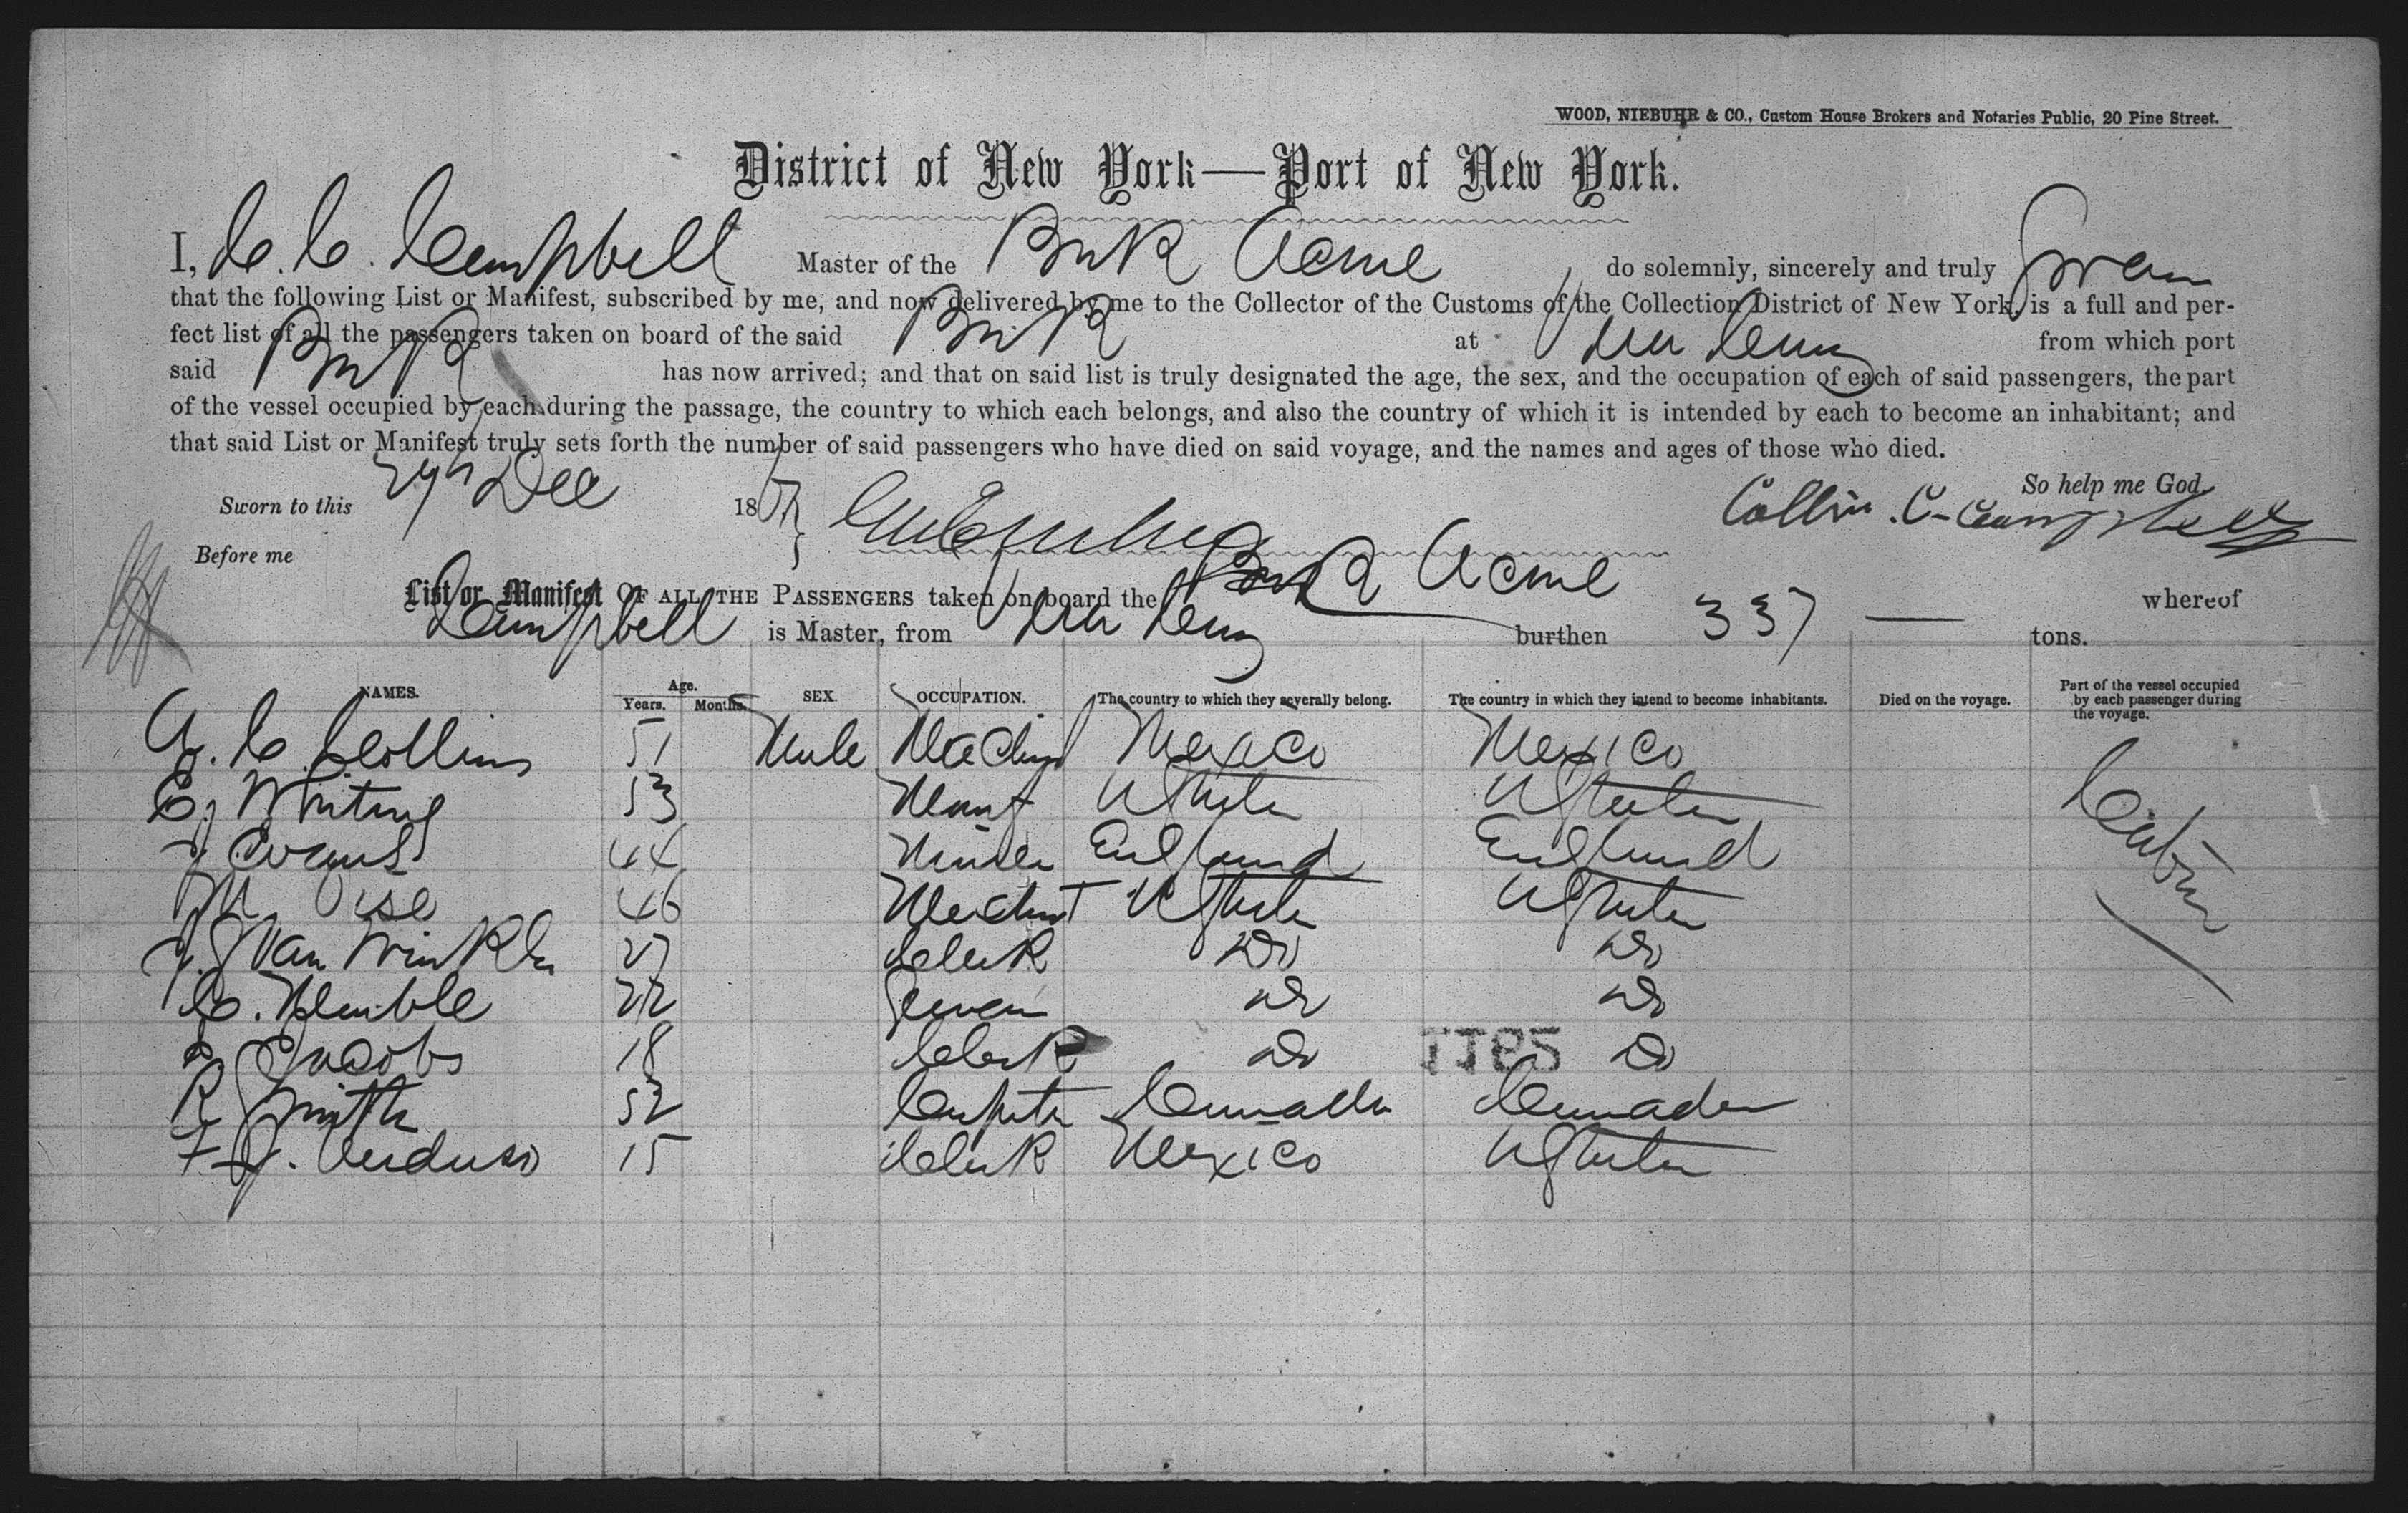 WOOD, NIEBUHR & CO., Custom House Brokers and Notaries Public, 20 Pine Street.
District of New York—Port of New York.
I, C. C. Campbell Master of the Bark Acme do solemnly, sincerely and truly Swear
that the following List or Manifest, subscribed by me, and now delivered by me to the Collector of the Customs of the Collection District of New York, is a full and per-
fect list of all the passengers taken on board of the said Bark at Vera Cruz from which port
said Bark has now arrived; and that on said list is truly designated the age, the sex, and the occupation of each of said passengers, the part
of the vessel occupied by each during the passage, the country to which each belongs, and also the country of which it is intended by each to become an inhabitant; and
that said List or Manifest truly sets forth the number of said passengers who have died on said voyage, and the names and ages of those who died.
So help me God.
Sworn to this Dec 18 Collin C. Campbell
Before me
List or Manifest OF ALL THE PASSENGERS taken on board the Bark Acme whereof
Campbell is Master, from Vera Cruz burthen 337 — tons.
NAMES. Age. Years. Months. SEX. OCCUPATION. The country to which they severally belong. The country in which they intend to become inhabitants. Died on the voyage. Part of the vessel occupied by each passenger during the voyage.
A. C. Collins 51 Male Mexico Mexico Cabin
E. Whiting 53 U States U States
J Evans 44 Miner England England
M 46 Merchant U States U States
J. Van Winkle 27 Clerk Do Do
C. Kemble 22 Do Do
Jacobs 18 Clerk Do Do
R Smith 52 Carpenter Cannada Cannada
F. J. Verduso 15 Clerk Mexico U States
1162